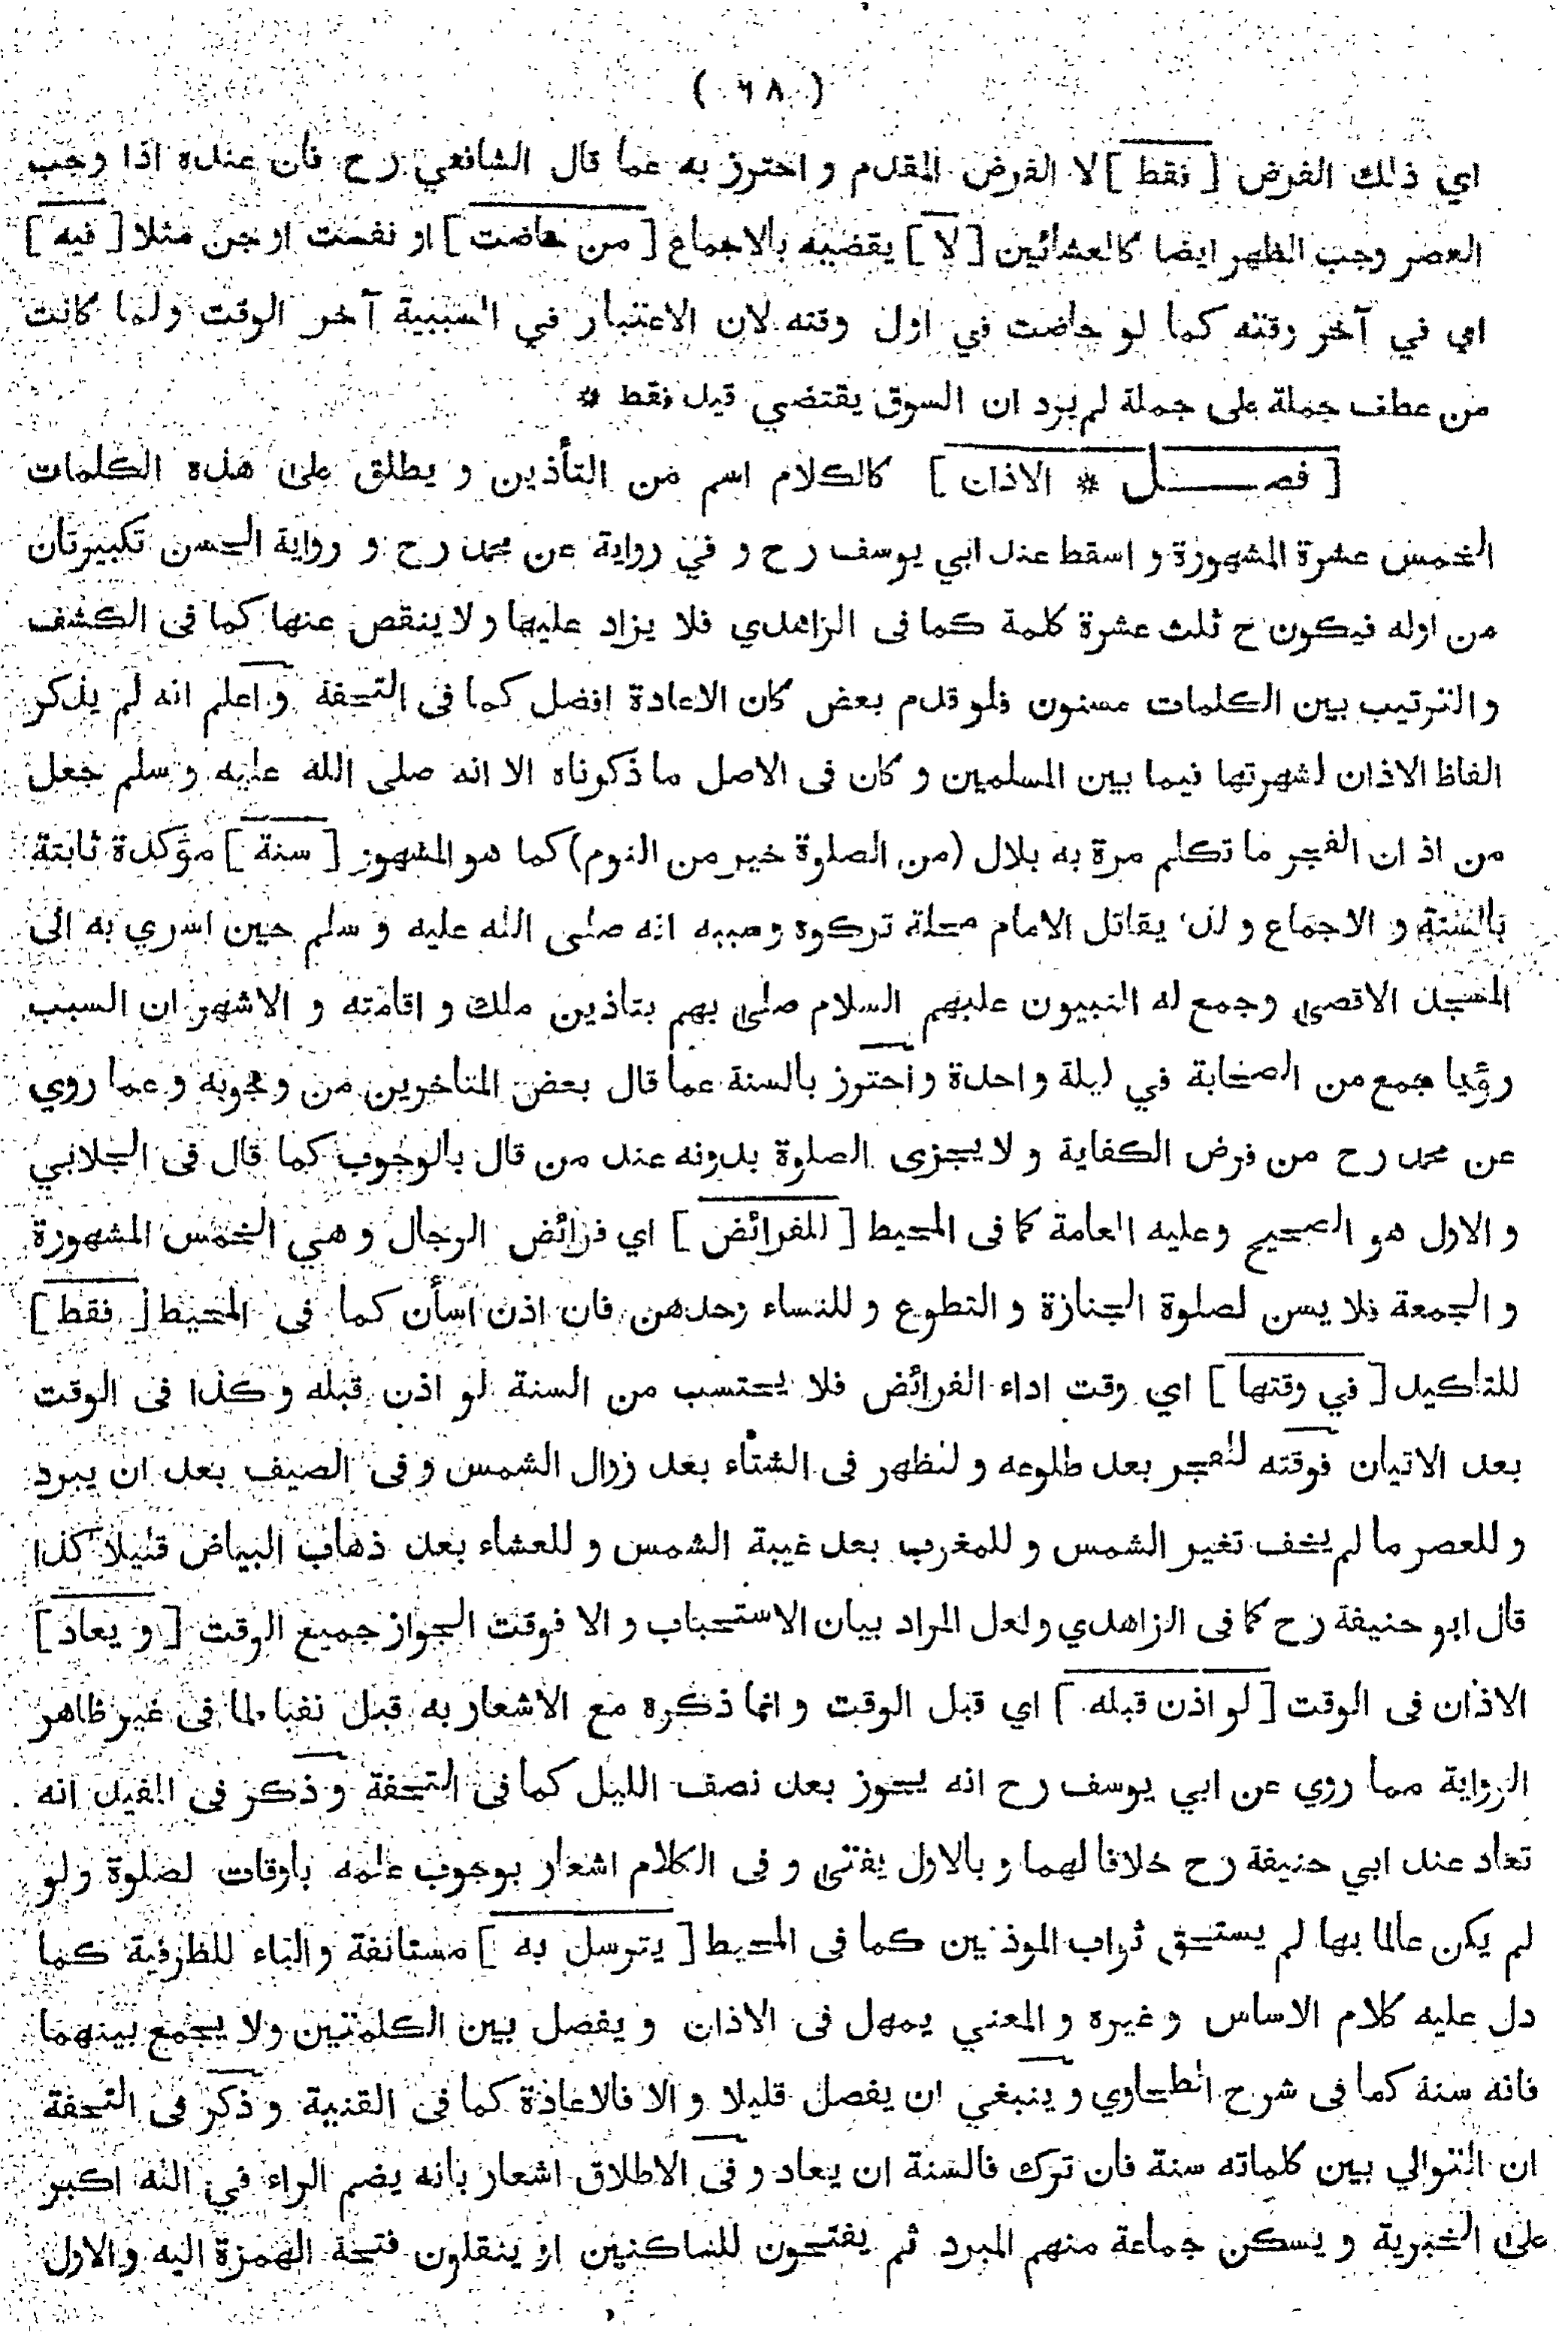 ( ٦٨ )
اي ذلك الفرض [ فقط ] لا الفرض المقدم و احترز به عما قال الشافعي رح فان عنده اذا وجب
العصر وجب الظهر ايضا كالعشائين [ لا ] يقضيه بالاجماع [ من حاضت ] او نفست او جن مثلا [ فيه ]
اي في آخر وقته كما لو حاضت في اول وقته لان الاعتبار في السببية آخر الوقت ولما كانت
من عطف جملة على جملة لم يرد ان السوق يقتضي قيل فقط *
[ فصـــل * الاذان ] كالكلام اسم من التأذين و يطلق على هذه الكلمات
الخمس عشرة المشهورة و اسقط عند ابي يوسف رح و في رواية عن محمد رح و رواية الحسن تكبيرتان
من اوله فيكون ح ثلث عشرة كلمة كما فى الزاهدي فلا يزاد عليها و لا ينقص عنها كما فى الكشف
و الترتيب بين الكلمات مسنون فلو قدم بعض كان الاعادة افضل كما فى التحفة و اعلم انه لم يذكر
الفاظ الاذان لشهرتها فيما بين المسلمين و كان فى الاصل ما ذكرناه الا انه صلى الله عليه و سلم جعل
من اذان الفجر ما تكلم مرة به بلال (من الصلوة خير من النوم) كما هو المشهور [ سنة ] مؤكدة ثابتة
بالسنة و الاجماع و لذا يقاتل الامام محلة تركوه و سببه انه صلى الله عليه و سلم حين اسري به الى
المسجد الاقصى وجمع له النبيون عليهم السلام صلى بهم بتاذين ملك و اقامته و الاشهر ان السبب
رؤيا جمع من الصحابة في ليلة واحدة و احترز بالسنة عما قال بعض المتاخرين من وجوبه و عما روي
عن محمد رح من فرض الكفاية و لا يجزى الصلوة بدونه عند من قال بالوجوب كما قال فى الجلابي
و الاول هو الصحيح وعليه العامة كما فى المحيط [ للفرائض ] اي فرائض الرجال و هي الخمس المشهورة
و الجمعة فلا يسن لصلوة الجنازة و التطوع و للنساء وحدهن فان اذن اسأن كما فى المحيط [ فقط ]
للتاكيد [ في وقتها ] اي وقت اداء الفرائض فلا يحتسب من السنة لو اذن قبله و كذا فى الوقت
بعد الاتيان فوقته للفجر بعد طلوعه و لظهر فى الشتاء بعد زوال الشمس و فى الصيف بعد ان يبرد
و للعصر ما لم يخف تغير الشمس و للمغرب بعد غيبة الشمس و للعشاء بعد ذهاب البياض قليلا كذا
قال ابو حنيفة رح كما فى الزاهدي و لعل المراد بيان الاستحباب و الا فوقت الجواز جميع الوقت [ و يعاد ]
الاذان فى الوقت [ لو اذن قبله ] اي قبل الوقت و انما ذكره مع الاشعار به قبل نفيا لما فى غير ظاهر
الرواية مما روي عن ابي يوسف رح انه يجوز بعد نصف الليل كما فى التحفة و ذكر فى المفيد انه
تعاد عند ابي حنيفة رح خلافا لهما و بالاول يفتى و فى الكلام اشعار بوجوب علمه باوقات لصلوة و لو
لم يكن عالما بها لم يستحق ثواب الموذنين كما فى المحيط [ يترسل به ] مستانفة و الباء للظرفية كما
دل عليه كلام الاساس و غيره و المعني يمهل فى الاذان و يفصل بين الكلمتين ولا يجمع بينهما
فانه سنة كما فى شرح الطحاوي و ينبغي ان يفصل قليلا و الا فالاعادة كما فى القنية و ذكر فى التحفة
ان التوالي بين كلماته سنة فان ترك فالسنة ان يعاد و فى الاطلاق اشعار بانه يضم الراء في الله اكبر
على الخبرية و يسكن جماعة منهم المبرد ثم يفتحون للساكنين او ينقلون فتحة الهمزة اليه و الاول